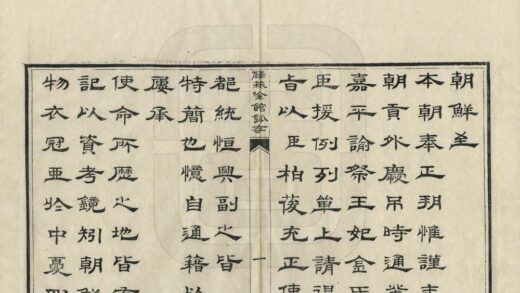 朝鮮至
本朝奉正朔惟謹
朝貢外慶弔時通
嘉平諭祭王妃金氏
臣援例列單上請
旨以臣柏葰充正使
薜箖吟館鈔存
一
都統恒興副之皆
特簡也憶自通籍
屢承
使命所歷之地皆
記以資考鏡矧朝鮮
物衣冠亞於中夏